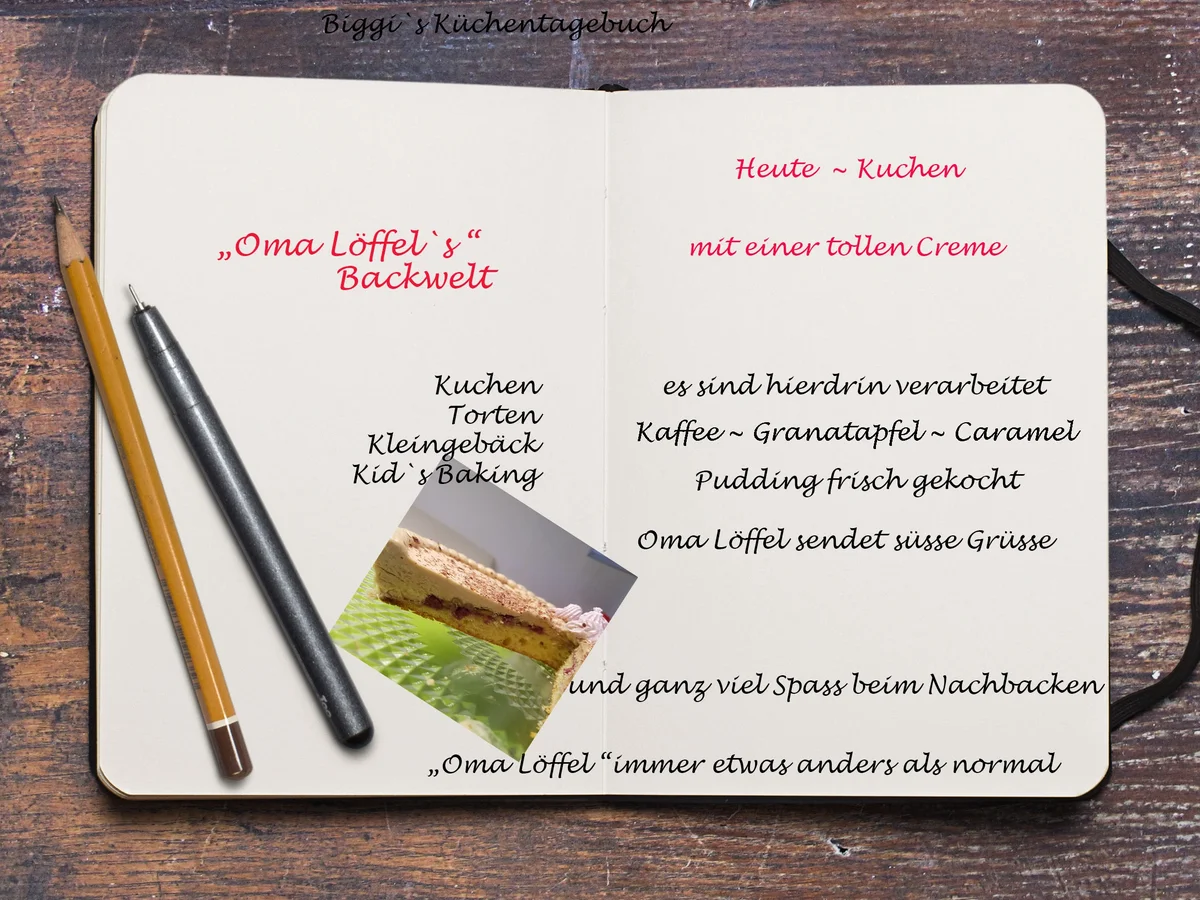 Biggi`s Küchentagebuch
„Oma Löffel`s“
Backwelt
Kuchen
Torten
Kleingebäck
Kid`s Baking
Heute ~ Kuchen
mit einer tollen Creme
es sind hierdrin verarbeitet
Kaffee ~ Granatapfel ~ Caramel
Pudding frisch gekocht
Oma Löffel sendet süsse Grüsse
und ganz viel Spass beim Nachbacken
„Oma Löffel“immer etwas anders als normal